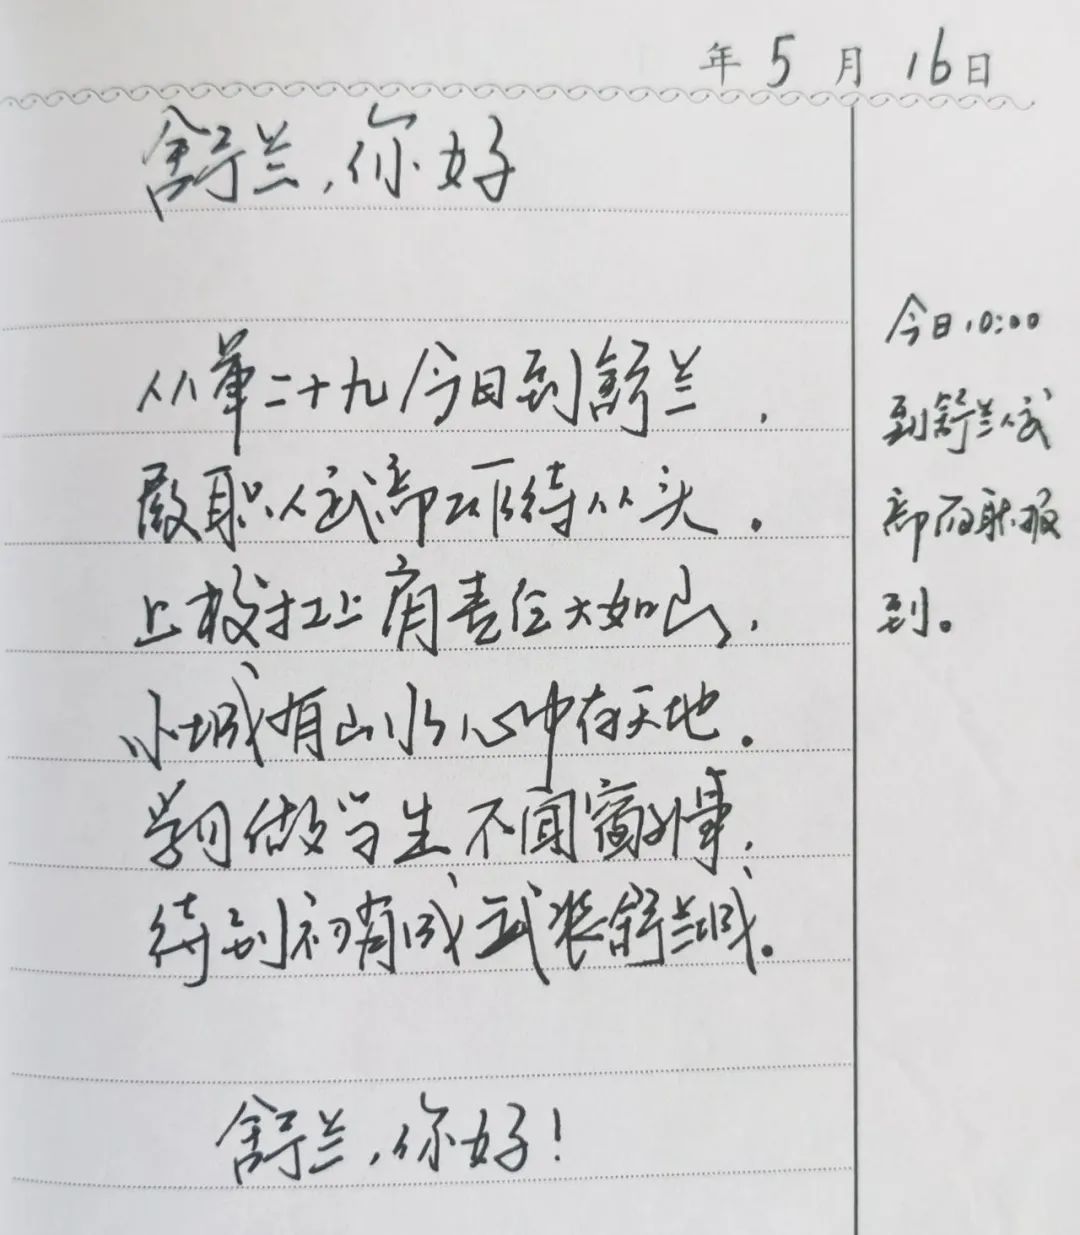 年5月16日
舒兰,你好
从军二十九今日到舒兰,
履职人武部一切待从头。
上校扛上肩责任大如山,
小城有山水心中存天地。
学习做学生不闻窗外事,
待到初有成武装舒兰城。
舒兰,你好!
今日10:00
到舒兰人武
部履职报
到。